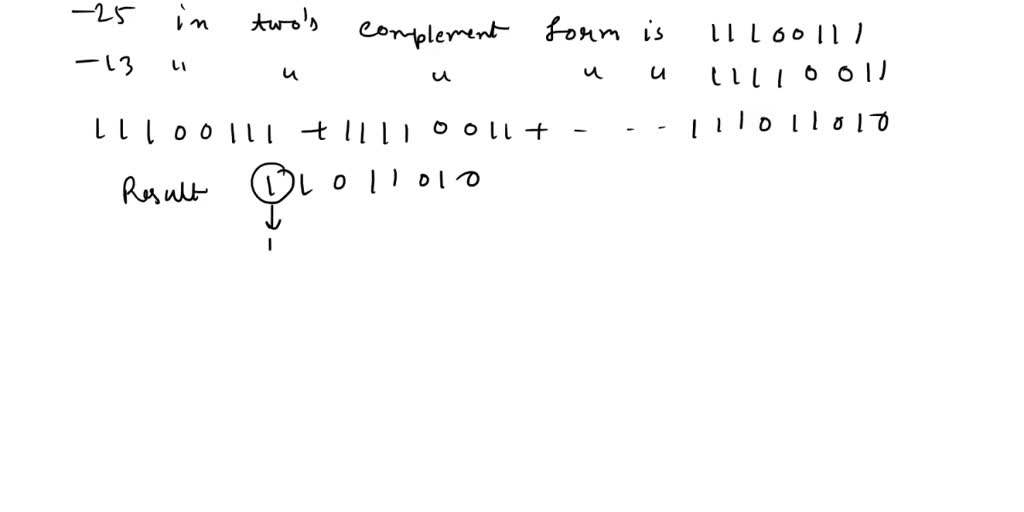 -25 in two's complement form is 11100111
-13 " " " " " 11110011
11100111 + 11110011 + - - - 111011010
Result 11011010
1